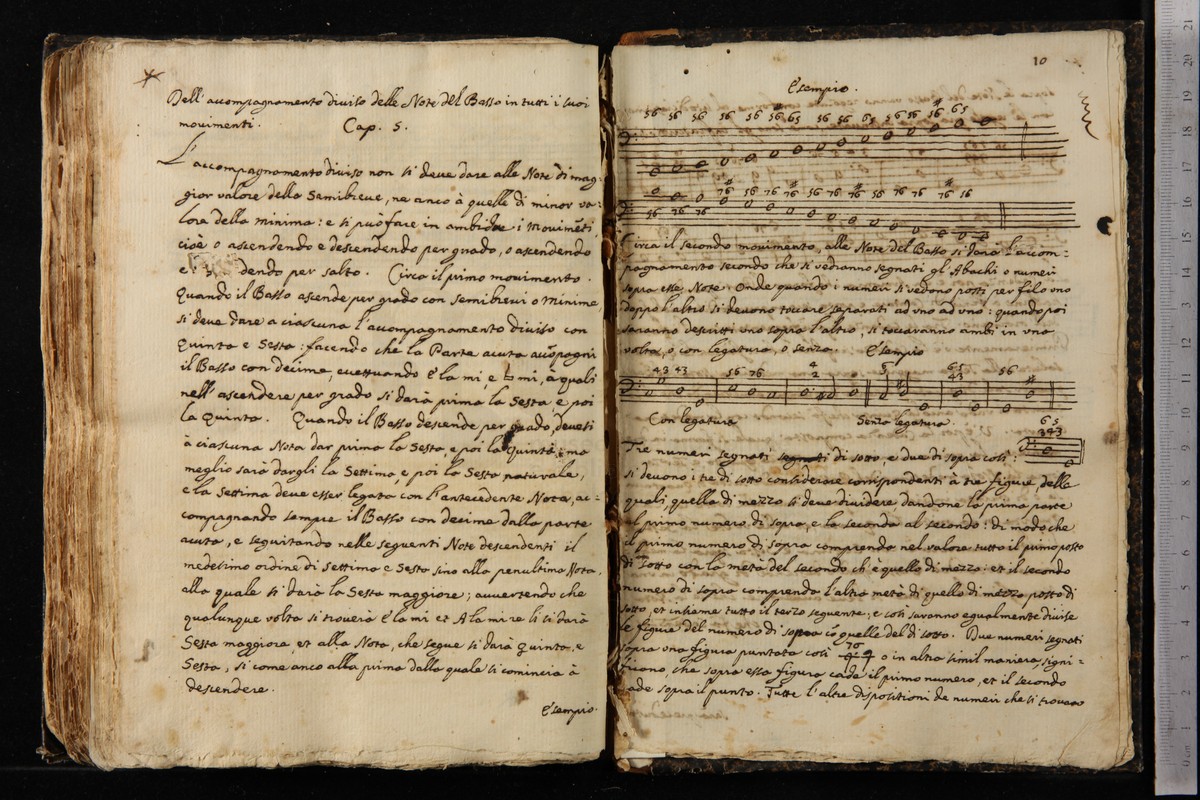 Dell'accompagnamento diviso delle Note del Basso in tutti i suoi
movimenti. Cap. 5.
L'accompagnamento diviso non si deve dare alle Note di mag-
gior valore della Semibreve, ne anco à quelle di minor va-
lore della minima: e si può fare in ambidue i Movimẽti
cioè o ascendendo e descendendo per grado, o ascendendo
e dendo per salto. Circa il primo movimento.
Quando il Basso ascende per grado con Semibrevi o Minime,
si deve dare a ciascuna l'accompagnamento diviso con
quinta e Sesta: facendo che la Parte acuta accõpagni
il Basso con decime, eccettuando E la mi, e ♮ mi, à quali
nell'ascendere per grado si darà prima la Sesta e poi
la Quinta. Quando il Basso descende per grado, devesi
à ciascuna Nota dar prima la Sesta, e poi la Quinta; ma
meglio sarà dargli la Settima, e poi la Sesta naturale,
e la Settima deve esser legata con l'antecedente Nota, ac-
compagnando sempre il Basso con decime dalla parte
acuta, e seguitando nelle seguenti Note descendenti il
medesimo ordine di Settima e Sesta sino alla penultima Nota,
alla quale si darà la Sesta maggiore; avvertendo che
qualunque volta si troverà E la mi et A la mi re li si darà
Sesta maggiore et alla Nota, che segue si darà quinta, e
Sesta, si come anco alla prima dalla quale si comincia à
descendere.
Esempio.
10
Esempio.
56 56 56 56 56 56 65 56 56 65 56 56 56 65
76 56 76 76 56 76 76 56 76 76 76 56
56 76 76
Circa il secondo movimento, alle Note del Basso si darà l'accom-
pagnamento secondo che si vedranno segnati gl'Abachi o numeri
sopra esse Note. Onde quando i numeri si vedono posti per filo uno
doppo l'altro si devono toccare separati ad uno ad uno: quando poi
saranno descritti uno sopra l'altro, si toccaranno ambi in una
volta, o con legatura, o senza. Esempio
43 43 56 76 4 2 6 5 65 43 56
Con legatura Senza legatura.
65
343
Tre numeri segnati segnati di sotto, e due di sopra così:
si devono i tre di sotto considerare corrispondenti à tre figure, delle
quali, quella di mezzo si deve dividere dandone la prima parte
al primo numero di sopra, e la seconda al secondo: di modo che
il primo numero di sopra comprenda nel valore tutto il primo posto
di sotto con la metà del secondo ch'è quello di mezzo: et il secondo
numero di sopra comprenda l'altra metà di quello di mezzo posto di
sotto, et insieme tutto il terzo seguente; e così saranno egualmente divise
le figure del numero di sopra cõ quelle del di sotto. Due numeri segnati
sopra una figura puntata così 76 o in altra simil maniera, signi-
ficano, che sopra essa figura cade il primo numero, et il secondo
cade sopra il punto. Tutte l'altre dispositioni de numeri che si trovano